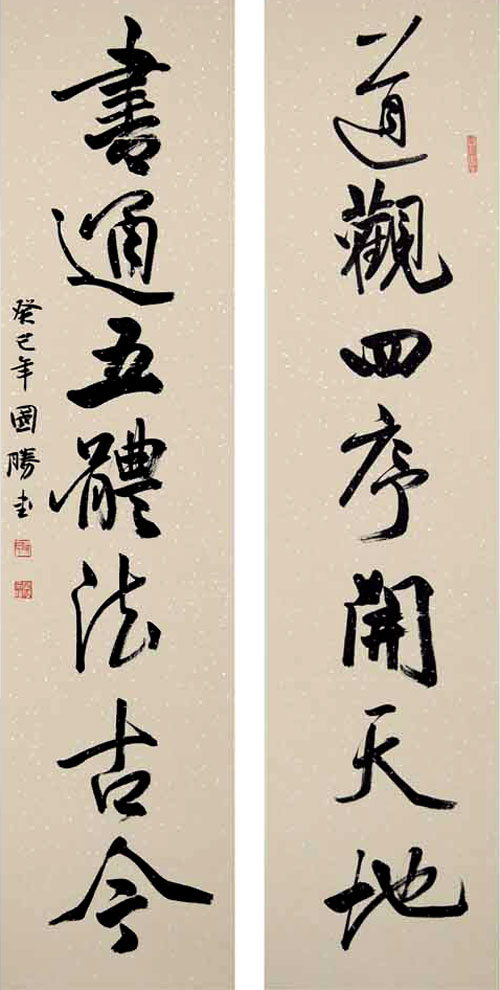 道觀四序開天地
書通五體法古今
癸巳年國勝書